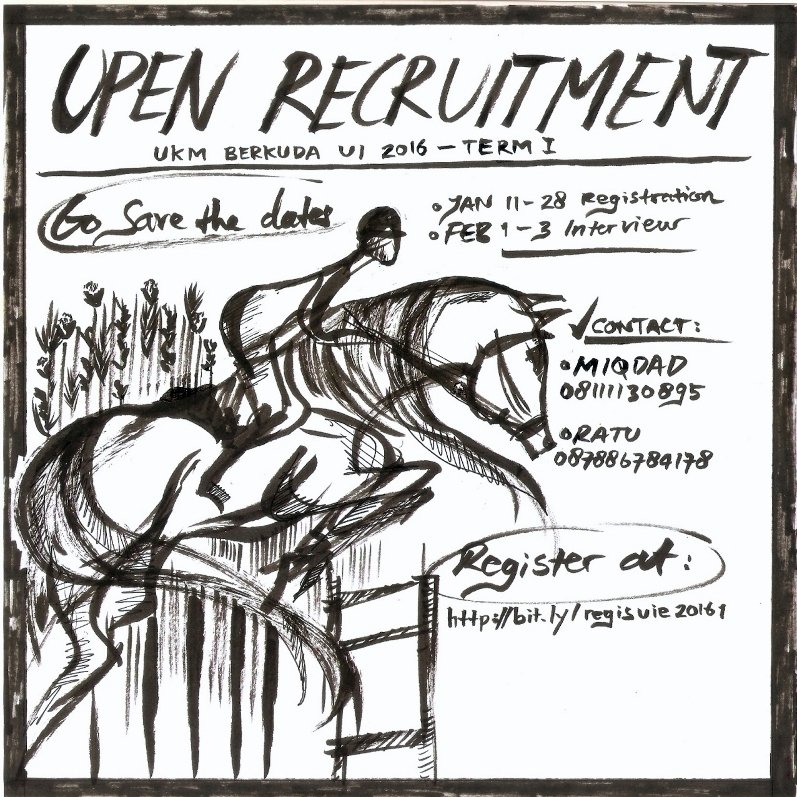 OPEN RECRUITMENT
UKM BERKUDA UI 2016 - TERM I
Go Save the dates
• JAN 11-28 Registration
• FEB 1-3 Interview
✓CONTACT:
• MIQDAD
08111130895
• RATU
087886784178
Register at:
http://bit.ly/regisuie20161